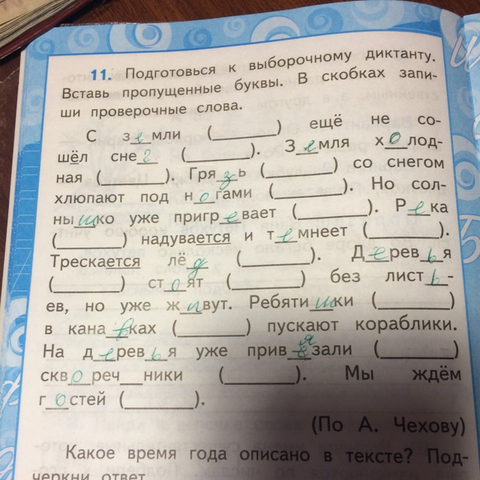 11. Подготовься к выборочному диктанту.
Вставь пропущенные буквы. В скобках запи-
ши проверочные слова.
С земли (______) ещё не со-
шёл снег (______). Земля холод-
ная (______). Грязь (______) со снегом
хлюпают под ногами (______). Но сол-
нышко уже пригревает (______). Река
(______) надувается и темнеет (______).
Трескается лёд (______). Деревья
(______) стоят (______) без листь-
ев, но уже живут. Ребятишки (______)
в канавках (______) пускают кораблики.
На деревья уже привязали (______)
сквореч__ники (______). Мы ждём
гостей (______).
(По А. Чехову)
Какое время года описано в тексте? Под-
черкни ответ.